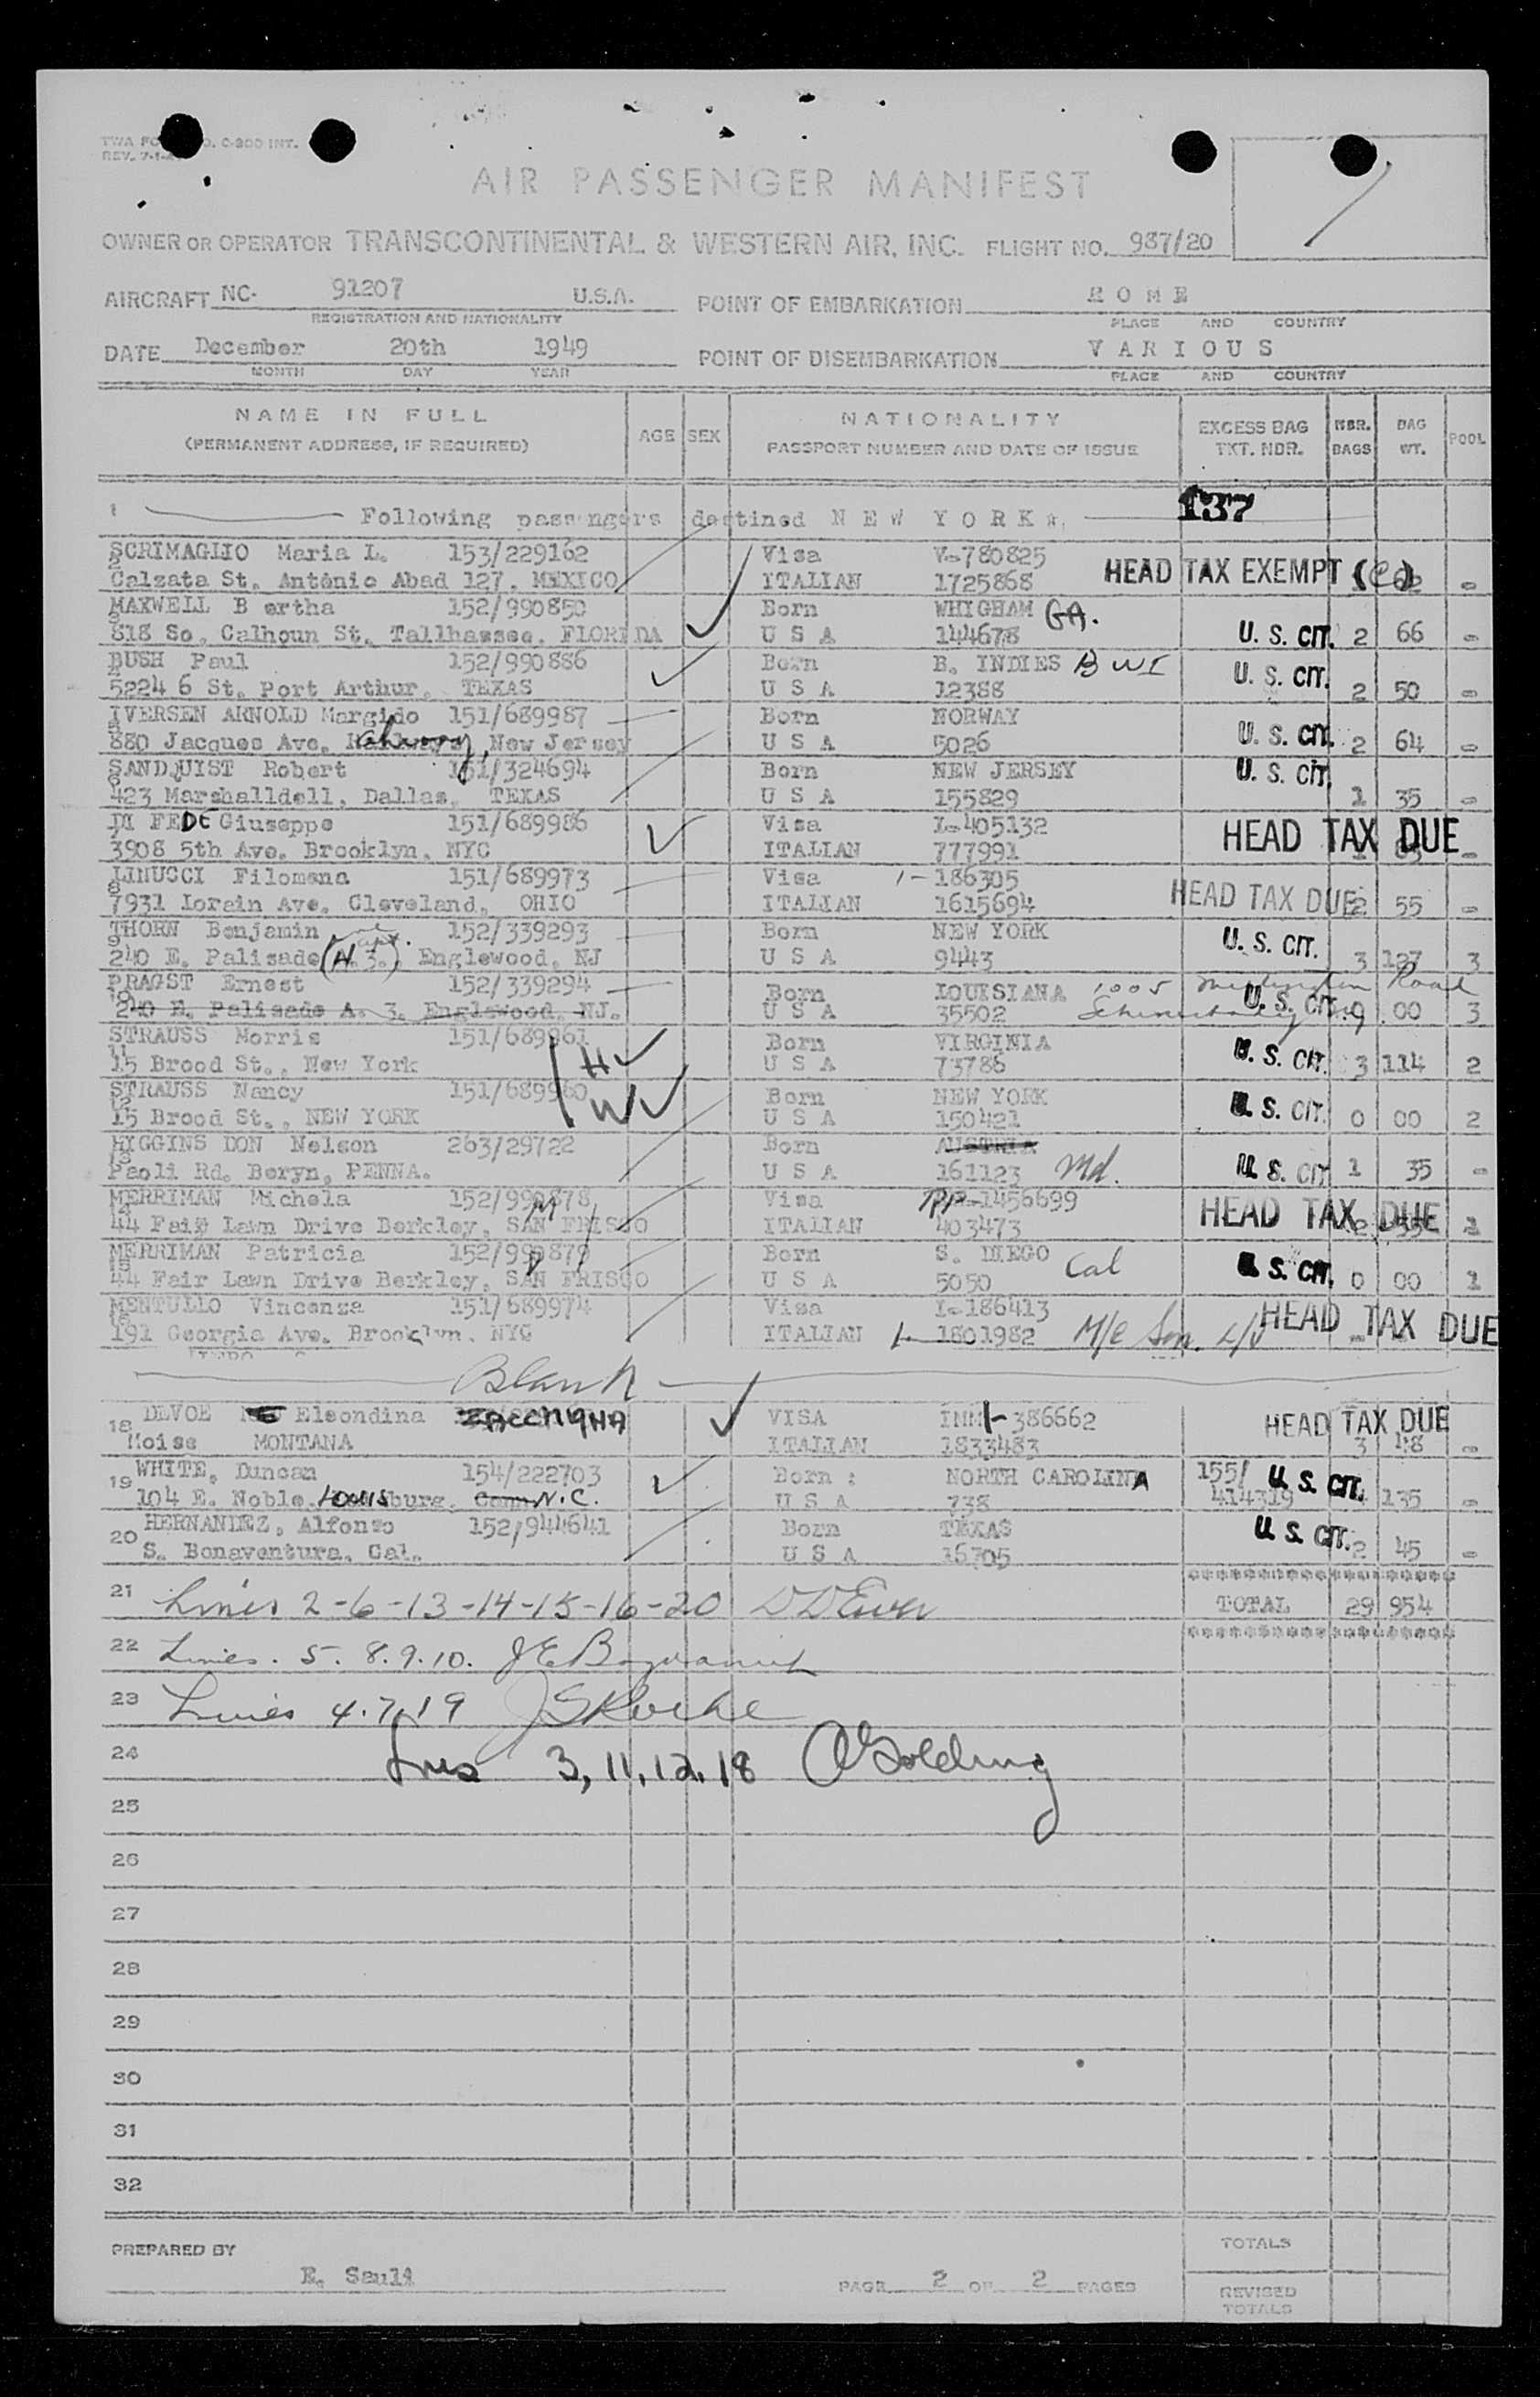 AIR PASSENGER MANIFEST
OWNER OR OPERATOR TRANSCONTINENTAL & WESTERN AIR, INC. FLIGHT NO. 987/20
AIRCRAFT NC- 91207 U.S.A. POINT OF EMBARKATION ROME
REGISTRATION AND NATIONALITY PLACE AND COUNTRY
DATE December 20th 1949 POINT OF DISEMBARKATION VARIOUS
MONTH DAY YEAR PLACE AND COUNTRY
NAME IN FULL AGE SEX NATIONALITY EXCESS BAG NBR. BAG POOL
(PERMANENT ADDRESS, IF REQUIRED) PASSPORT NUMBER AND DATE OF ISSUE TKT. NBR. BAGS WT.
1 Following passengers destined NEW YORK 137
SCRIMAGLIO Maria L. 153/229162 Visa V-780825
2 Calzata St. Antonio Abad 127. MEXICO ITALIAN 1725868 HEAD TAX EXEMPT (C)
MAXWELL B ertha 152/990850 Born WHIGHAM GA.
3 818 So. Calhoun St. Tallhassee. FLORIDA U S A 144678 U. S. CIT. 2 66 -
BUSH Paul 152/990886 Born B. INDIES B W I
5224 6 St. Port Arthur. TEXAS U S A 12388 U. S. CIT. 2 50 -
IVERSEN ARNOLD Margido 151/689987 Born NORWAY
880 Jacques Ave. New Jersey U S A 5026 U. S. CIT. 2 64 -
SANDQUIST Robert 151/324694 Born NEW JERSEY U. S. CIT.
6 423 Marshalldell, Dallas, TEXAS U S A 155829 1 35 -
DI FEDE Giuseppe 151/689986 Visa I-405132
3908 5th Ave. Brooklyn, NYC ITALIAN 777991 HEAD TAX DUE -
LINUCCI Filomena 151/689973 Visa 1-186305
8 7931 Lorain Ave. Cleveland, OHIO ITALIAN 1615694 HEAD TAX DUE 2 55 -
THORN Benjamin 152/339293 Born NEW YORK
9 240 E. Palisade (A. 3.) Englewood, NJ U S A 9443 U. S. CIT. 3 127 3
PRAGST Ernest 152/339294 Born LOUISIANA 1005 Road
10 240 E. Palisade A. 3. Englewood. NJ. U S A 35502 U. S. CIT. 0 00 3
STRAUSS Morris 151/689961 H Born VIRGINIA
11 15 Brood St., New York U S A 73786 U. S. CIT. 3 114 2
STRAUSS Nancy 151/689960 W Born NEW YORK
12 15 Brood St., NEW YORK U S A 150421 U. S. CIT. 0 00 2
HIGGINS DON Nelson 263/29722 Born AUSTRIA
13 Paoli Rd. Beryn, PENNA. U S A 161123 Md. U. S. CIT 1 35 -
MERRIMAN Michela 152/990878 Visa PP-1456699
14 44 Fair Lawn Drive Berkley, SAN FRISCO ITALIAN 403473 HEAD TAX DUE 1
MERRIMAN Patricia 152/990879 Born S. DIEGO Cal
15 44 Fair Lawn Drive Berkley, SAN FRISCO U S A 5050 U. S. CIT. 0 00 1
MENTULLO Vincenza 151/689974 Visa I-186413
16 191 Georgia Ave. Brooklyn. NYC ITALIAN 1801982 HEAD TAX DUE
Blank
18 DEVOE Eleondina VISA IMM 1-386662
Moise MONTANA ITALIAN 1833483 HEAD TAX DUE 3 48 -
19 WHITE, Duncan 154/222703 Born: NORTH CAROLINA 155/
104 E. Noble. LOUISburg. N.C. U S A 738 414319 U. S. CIT. 135 -
20 HERNANDEZ, Alfonso 152/944641 Born TEXAS
S. Bonaventura. Cal. U S A 16705 U. S. CIT. 2 45 -
21 Lines 2-6-13-14-15-16-20 TOTAL 29 954
22 Lines. 5. 8. 9. 10.
23 Lines 4. 7. 19
24 3, 11, 12, 18 Golding
25
26
27
28
29
30
31
32
PREPARED BY TOTALS
E. Sauli PAGE 2 OF 2 PAGES
REVISED
TOTALS